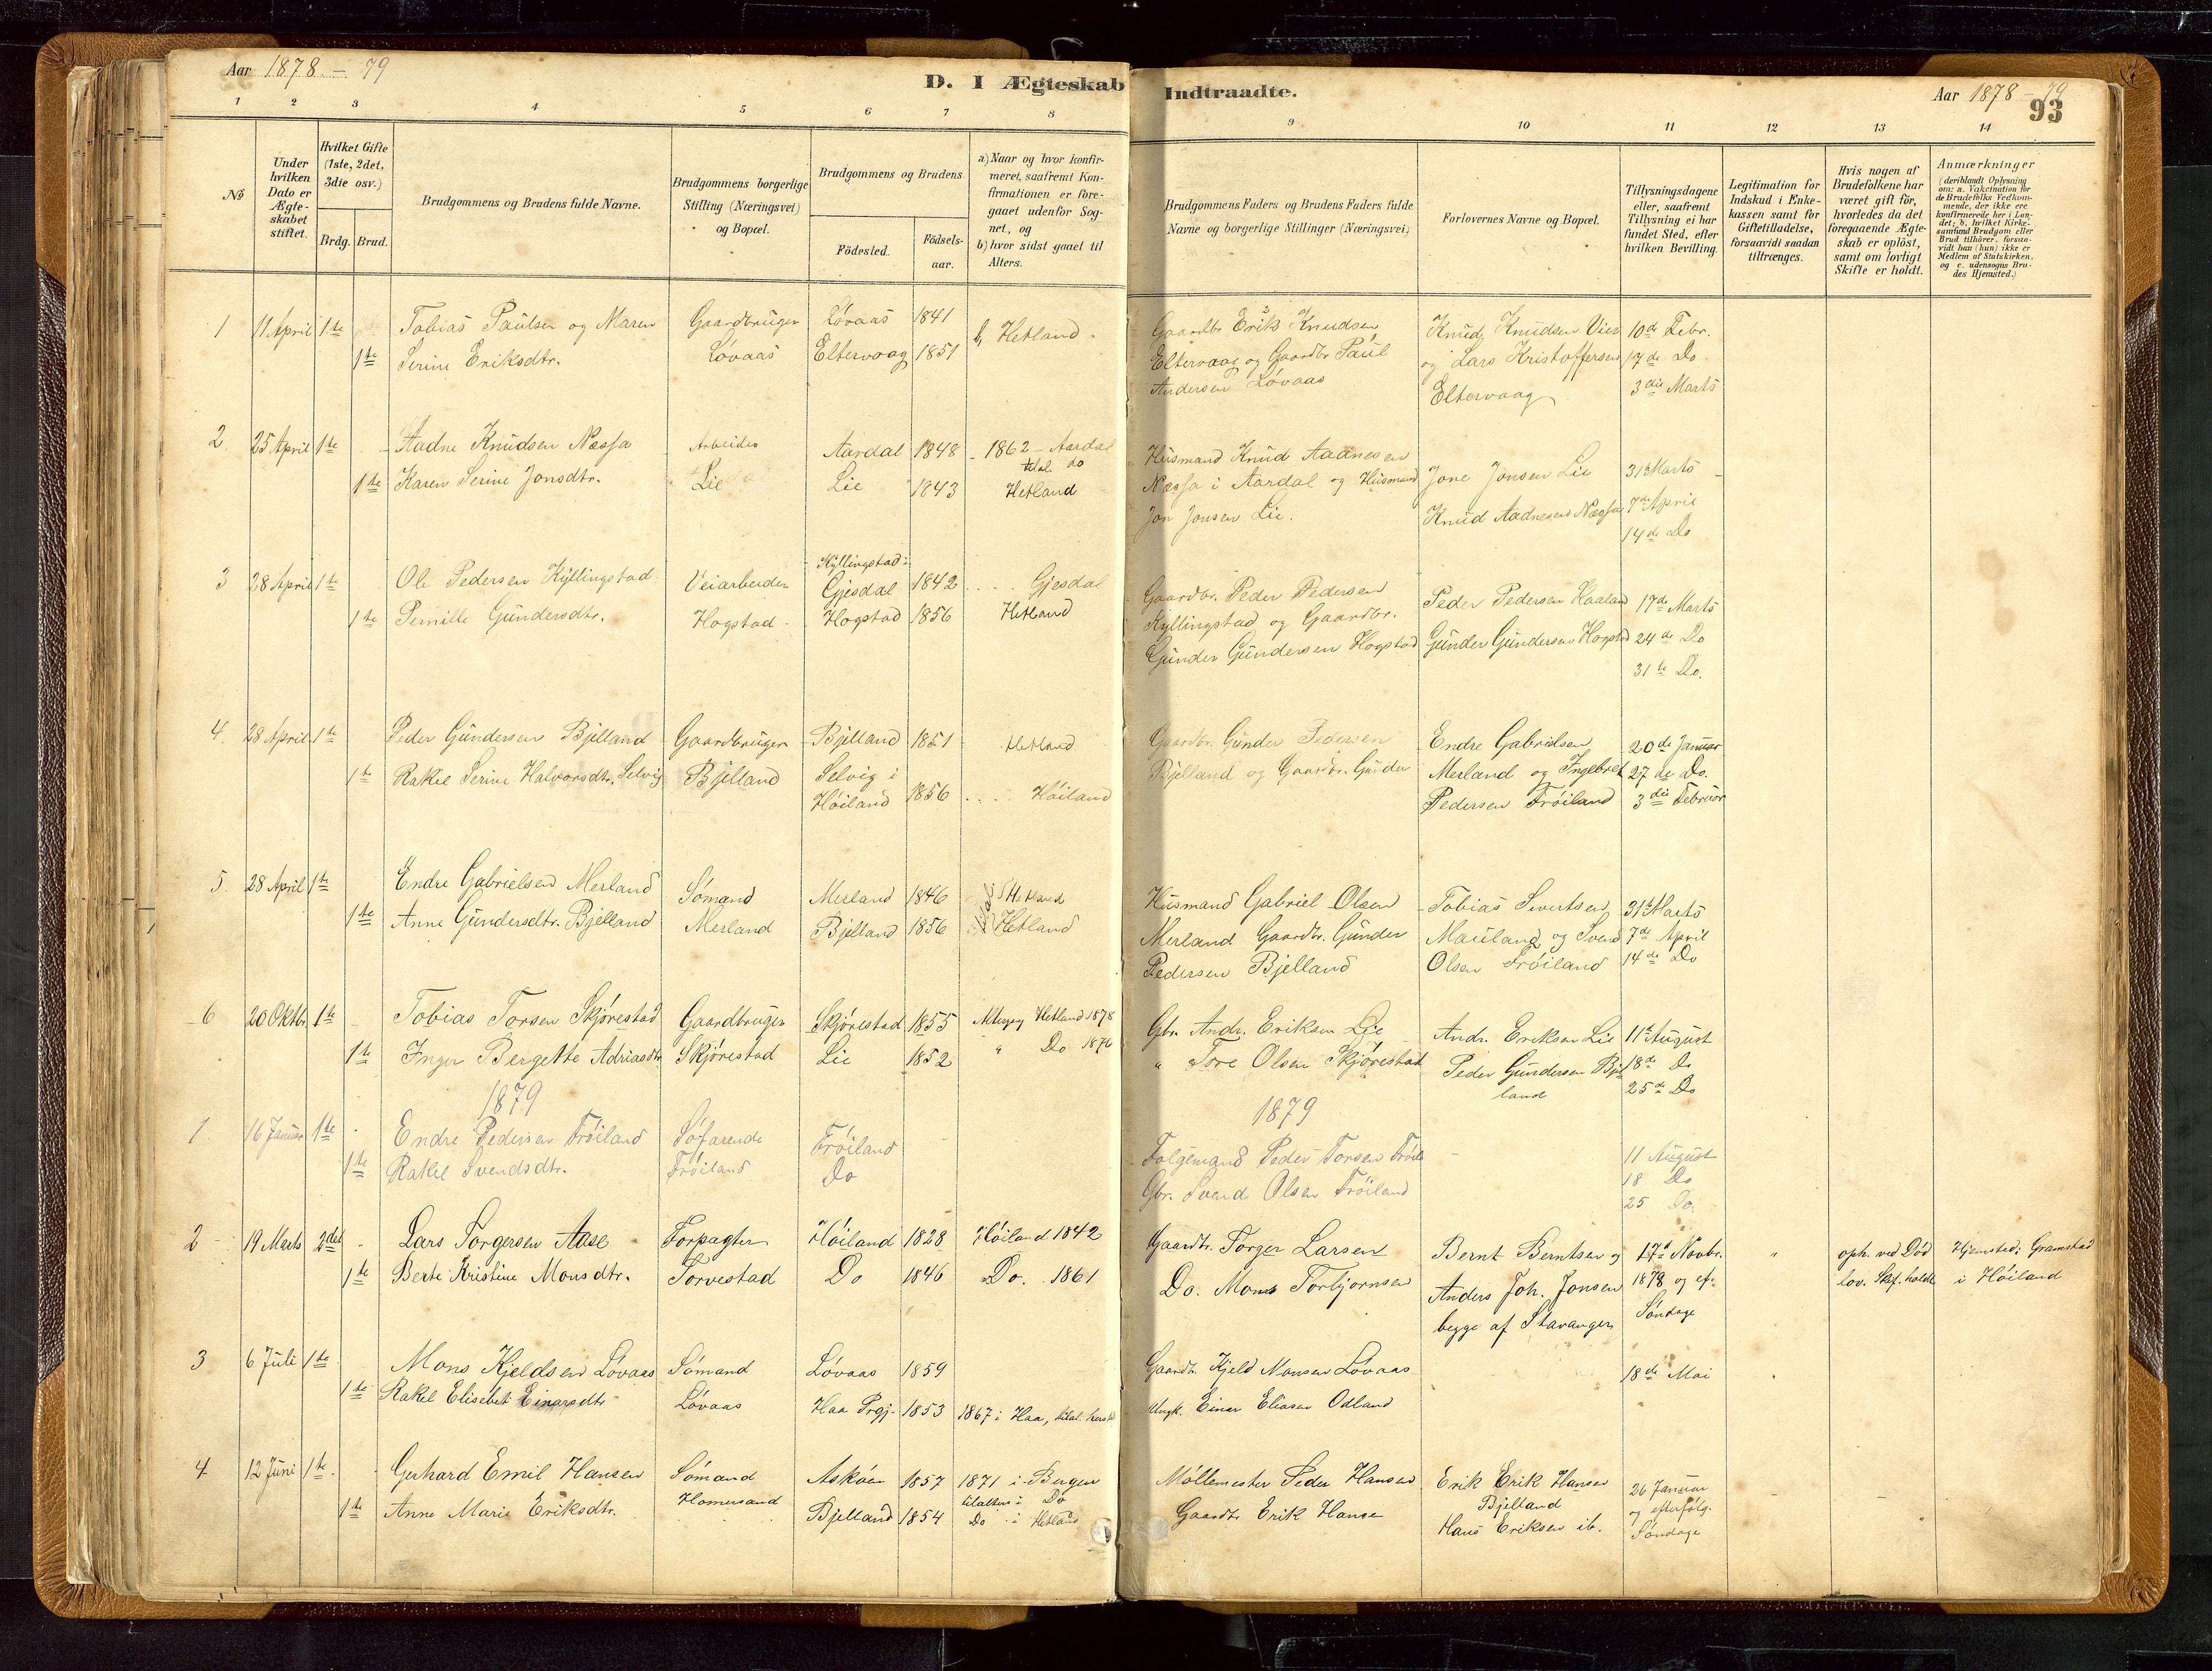 Aar 1878 – 79
D. I Ægteskab Indtraadte.
Aar 1878 – 79
93
1 2 3 4 5 6 7 8 9 10 11 12 13 14
No
Under hvilken Dato er Ægte-skabet stiftet.
Hvilket Gifte (1ste, 2det, 3die osv.)
Brdg. Brud.
Brudgommens og Brudens fulde Navne.
Brudgommens borgerlige Stilling (Næringsvei) og Bopæl.
Brudgommens og Brudens
Födested.
Födsels-aar.
a) Naar og hvor konfir-meret, saafremt Kon-firmationen er fore-gaaet udenfor Sog-net, og
b) hvor sidst gaaet til Alters.
Brudgommens Faders og Brudens Faders fulde Navne og borgerlige Stillinger (Næringsvei)
Forlovernes Navne og Bopæl.
Tillysningsdagene eller, saafremt Tillysning ei har fundet Sted, efter hvilken Bevilling.
Legitimation for Indskud i Enke-kassen samt for Giftetilladelse, forsaavidt saadan tiltrænges.
Hvis nogen af Brudefolkene har været gift för, hvorledes da det foregaaende Ægte-skab er oplöst, samt om lovligt Skifte er holdt.
Anmærkninger (deriblandt Oplysning om: a. Vakcination for de Brudefolks Vedkom-mende, der ikke ere konfirmerede her i Lan-det; b. hvilket Kirke-samfund Brudgom eller Brud tilhörer, forsaa-vidt han (hun) ikke er Medlem af Statskirken, og c. udensogns Bru-des Hjemsted.)
1 11 April 1te Tobias Paulsen og Maren Gaardbruger Løvaas 1841 b, Hetland. Gaardbr Erik Knudsen Knud Knudsen Vier 10de Febr.
1te Serine Eriksdtr. Løvaas Eltervaag 1851 Eltervaag og Gaardbr Paul og Lars Kristoffersen 17de Do
Andersen Løvaas Eltervaag 3die Marts
2 25 April 1te Aadne Knudsen Næssa Arbeider Aardal 1848 1862 – Aardal Husmand Knud Aadnesen Jone Jonsen Lie 31te Marts
1te Karen Serine Jonsdtr. Lie Lie 1843 do Hetland Næssa i Aardal og Husmand Knud Aadnesen Næssa 7de April
Jon Jonsen Lie. 14de Do
3 28 April 1te Ole Pedersen Kyllingstad Veiarbeider Kyllingstad i Gjesdal 1842 Gjesdal Gaardbr. Peder Pedersen Peder Pedersen Haaland 17de Marts
1te Pernille Gundersdtr. Hogstad Hogstad 1856 Hetland Kyllingstad og Gaardbr. Gunder Gundersen Hogstad 24de Do
Gunder Gundersen Hogstad 31te Do.
4. 28 April 1te Peder Gundersen Bjelland Gaardbruger Bjelland 1851 Hetland Gaardbr. Gunder Pedersen Endre Gabrielsen 20de Januar
1te Rakel Serine Halvorsdtr. Selvig Bjelland Selvig i Høiland 1856 Høiland Bjelland og Gaardbr. Gunder Mesland og Ingebret 27de Do.
Pedersen Frøiland 3die Februar
5. 28 April 1te Endre Gabrielsen Mesland Sømand Mesland 1846 Hetland Husmand Gabriel Olsen Tobias Sivertsen 31te Marts
1te Anne Gundersdtr. Bjelland Mesland Bjelland 1856 Hetland Mesland Gaardbr. Gunder Mauland og Svend 7de April
Pedersen Bjelland Olsen Frøiland 14de Do
6 20 Oktbr 1te Tobias Torsen Skjørestad Gaardbruger Skjørestad 1855 Hetland 1878 Gbr. Andr. Eriksen Lie Andr. Eriksen Lie 11te August
1te Inger Bergette Adriasdtr Skjørestad Lie 1852 " Do 1876 " Tore Olsen Skjørestad Peder Gundersen Bjelland 18de Do
25de Do
1879
1879
1. 16 Januar 1te Endre Pedersen Frøiland Søfarende Frøiland Folgemand Peder Torsen 11 August
1te Rakel Svendsdtr. Frøiland Do Gbr. Svend Olsen Frøiland 18 Do
25 Do.
2 19 Marts 2det Lars Torgersen Aase Forpagter Høiland 1828 Høiland 1842 Gaardbr. Torger Larsen Bernt Berntsen og 17d Novbr. " oph. ved Død Hjemsted: Gramstad
1te Berte Kristine Monsdtr. Torvestad Do 1846 Do. 1861 Do. Mons Torbjornsen Anders Joh. Jonsen 1878 og ef- lov. Skf. holdt i Høiland
begge af Stavanger Søndage
3 6 Juli 1te Mons Kjeldsen Løvaas Sømand Løvaas 1859 Gaardbr. Kjeld Monsen Løvaas 18de Mai
1te Rakel Elisebet Einarsdtr Løvaas Haa Prgj. 1853 1867 i Haa, Ungk. Einar Eliasen Odland
4 12 Juni 1te Gerhard Emil Hansen Sømand Askøen 1857 1871 i Bergen Møllemester Peder Hansen Erik Erik Hansen Bjelland 26 Januar
1te Anne Marie Eriksdtr. Homersand Bjelland 1854 tilalters i Do Do i Hetland Gaardbr Erik Hanse Hans Eriksen ib. og efterfølg. Søndage